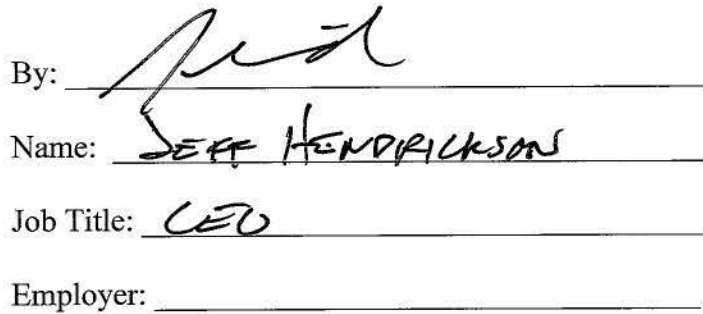 By:
Name: JEFF HENDRICKSON
Job Title: CEO
Employer: